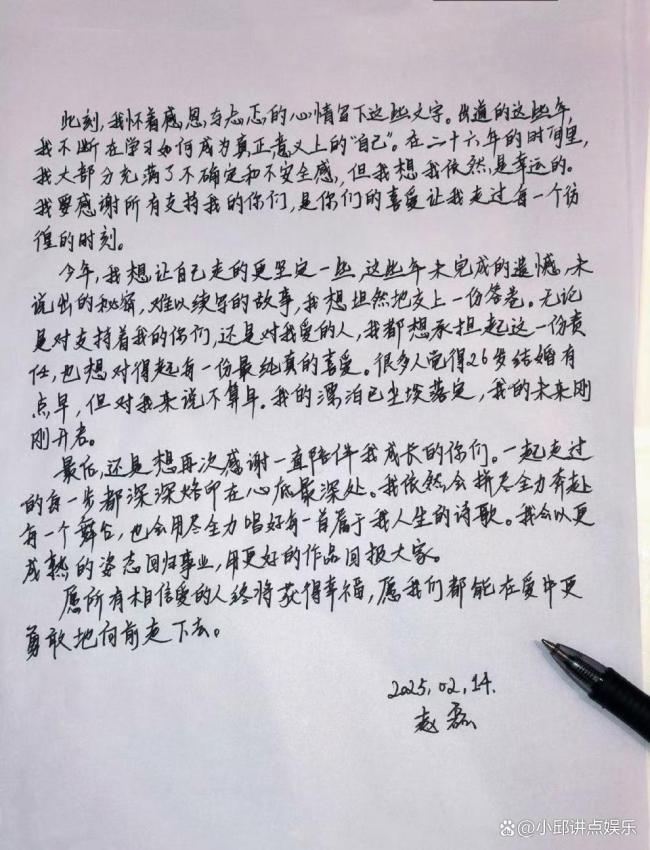 此刻,我怀着感恩与忐忑的心情留下这些文字。出道的这些年,
我不断在学习如何成为真正意义上的"自己"。在二十六年的时间里,
我大部分充满了不确定和不安全感,但我想我依然是幸运的。
我要感谢所有支持我的你们,是你们的喜爱让我走过每一个彷
徨的时刻。
今年,我想让自己走的更坚定一些,这些年未完成的遗憾,未
说出的秘密,难以续写的故事,我想坦然地交上一份答卷。无论
是对支持着我的你们,还是对我爱的人,我都想承担起这一份责
任,也想对得起每一份最纯真的喜爱。很多人觉得26岁结婚有
点早,但对我来说不算早。我的漂泊已尘埃落定,我的未来刚
刚开启。
最后,还是想再次感谢一直陪伴我成长的你们。一起走过
的每一步都深深烙印在心底最深处。我依然会拼尽全力奔赴
每一个舞台,也会用尽全力唱好每一首属于我人生的诗歌。我会以更
成熟的姿态回归事业,用更好的作品回报大家。
愿所有相信爱的人终将获得幸福,愿我们都能在爱中更
勇敢地向前走下去。
2025.02.14.
赵磊
小邱讲点娱乐